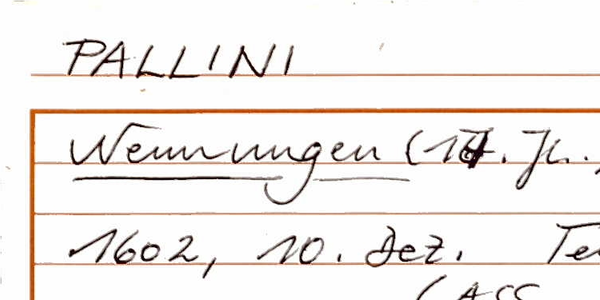 PALLINI
Nennungen (17. Jh.
1602, 10. Dez. Te
(ASS